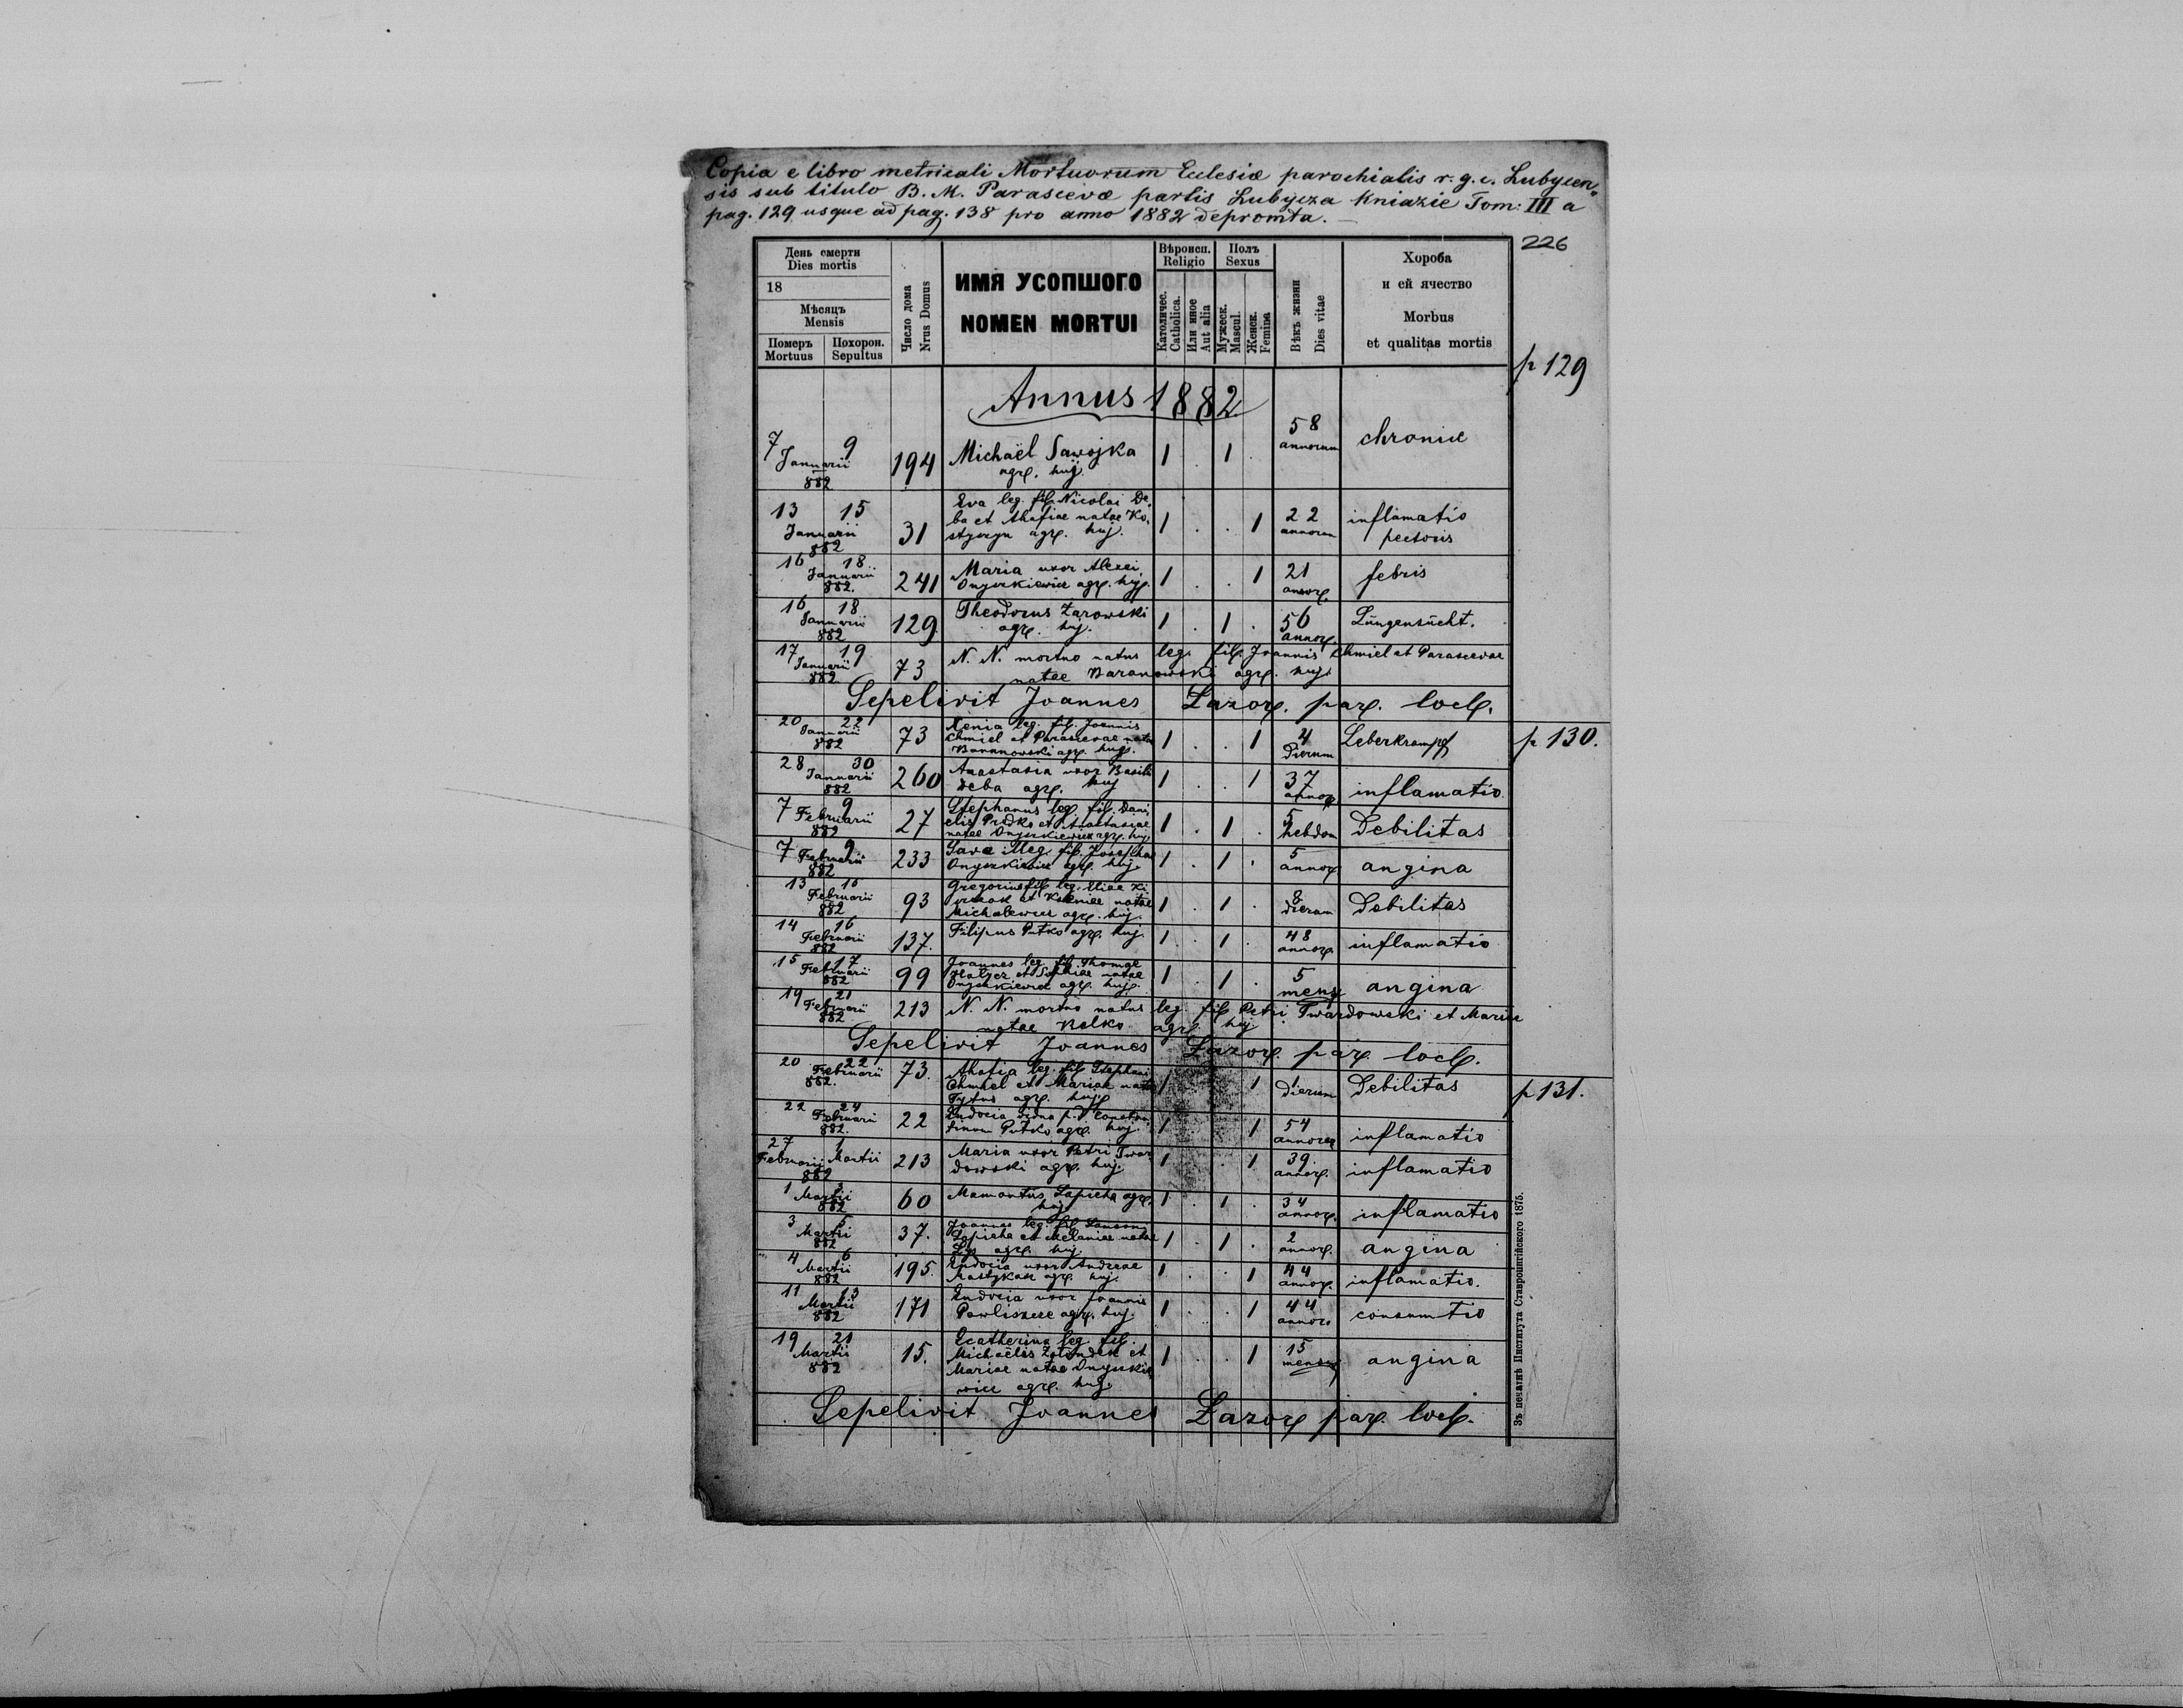 Copia e libro metricali Mortuorum Eclesiæ parochialis r. g. c. Lubycen„
sis sub titulo B. M. Parascevæ partis Lubycza Kniazie Tom: III a
pag. 129 usque ad pag. 138 pro anno 1882 depromta.
226
День смерти
Dies mortis
18
Мѣсяцъ
Mensis
Померъ
Mortuus
Похорон.
Sepultus
Число дома
Nrus Domus
ИМЯ УСОПШОГО
NOMEN MORTUI
Вѣроисп.
Religio
Католичес.
Catholica.
Или иное
Aut alia
Полъ
Sexus
Мужеск.
Mascul.
Женск.
Femina
Вѣкъ жизни
Dies vitae
Хороба
и ей ячество
Morbus
et qualitas mortis
p 129
Annus 1882
7 9 Januarii 882 194 Michaël Sawojka agr. huj. 1 . 1 . 58 annorum chronic
13 15 Januarii 882 31 Eva leg. fil. Nicolai De
ba et Ahafiae natae Ko
agr. huj. 1 . . 1 22 annorum inflamatio pectoris
16 18 Januarii 882. 241 Maria uxor Alexei
Onyszkiewicz agr. huj. 1 . . 1 21 annor. febris
16 18 Januarii 882 129 Theodorus Żarowski
agr. huj. 1 . 1 . 56 annor. Lungensücht.
17 19 Januarii 882 73 N. N. mortuo natus leg. fil. Joannis Chmiel et Parascevae
natae Baranowski agr. huj.
Sepelivit Joannes Lazor. par. loci.
20 22 Januarii 882 73 Xenia leg. fil. Joannis
Chmiel et Parascevae natae
Baranowski agr. huj. 1 . . 1 4 Dierum Leberkrampf
p 130.
28 30 Januarii 882 260 Anastasia uxor Basili
Deba agr. huj 1 . . 1 37 annor inflamatio
7 9 Februarii 882 27 Stephanus leg. fil. Dani
elis et Anastasiae
natae Onyszkiewicz agr. huj. 1 . 1 . 5 hebdom Debilitas
7 9 Februarii 882 233 Sava illeg. fil. Josephae
Onyszkiewicz agr. huj. 1 . 1 . 5 annor angina
13 15 Februarii 882 93 Gregorius fil. leg. Eliae
et Kseniae natae
Michalewicz agr. huj. 1 . 1 . 8 dierum Debilitas
14 16 Februarii 882 137. Filipus Putko agr. huj. 1 . 1 . 48 annor inflamatio
15 17 Februarii 882 99 Joannes leg. fil. Thomae
et Sophiae natae
Onyszkiewicz agr. huj. 1 . 1 . 5 mens angina
19 21 Februarii 882 213 N. N. mortuo natus leg. fil. Petri Twardowski et Mariae
natae Kulko agr. huj
Sepelivit Joannes Lazor. par. loci.
20 22 Februarii 882. 73. Ahafia leg. fil. Stephani
Chmiel et Mariae natae
Tytus agr. huj. 1 1 1 dierum Debilitas
p 131.
22 24 Februarii 882. 22 Eudocia
Putko agr. huj. 1 1 54 annorum inflamatio
27 Februarii 1 Martii 882 213 Maria uxor Petri Twar
dowski agr. huj. 1 . 1 39 annor. inflamatio
1 3 Martii 882 60 Mamantus Lapicha agr.
huj. 1 . 1 . 34 annor. inflamatio
3 5 Martii 882 37. Joannes leg. fil.
Lapicha et Melaniae natae
agr. huj. 1 . 1 . 2 annor. angina
4 6 Martii 882 195. Eudocia uxor Andreae
agr. huj. 1 . . 1 44 annor. inflamatio.
11 13 Martii 882 171 Eudocia uxor Joannis
agr. huj. 1 . . 1 44 annor consumtio
19 21 Martii 882 15. Ecatherina leg. fil.
Michaëlis et
Mariae natae Onyszkie
wicz agr. huj. 1 . . 1 15 mens angina
Sepelivit Joannes Lazor par. loci.
Зъ печатнѣ Института Ставропигійского 1875.